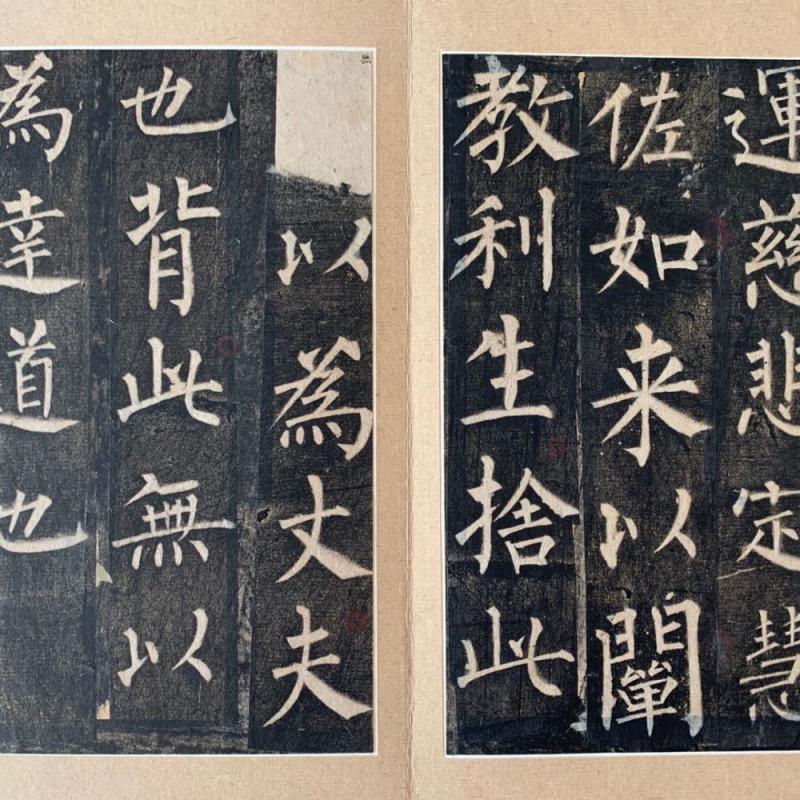 運慈悲定慧
佐如来以闡
教利生捨此
以為丈夫
也背此無以
為達道也